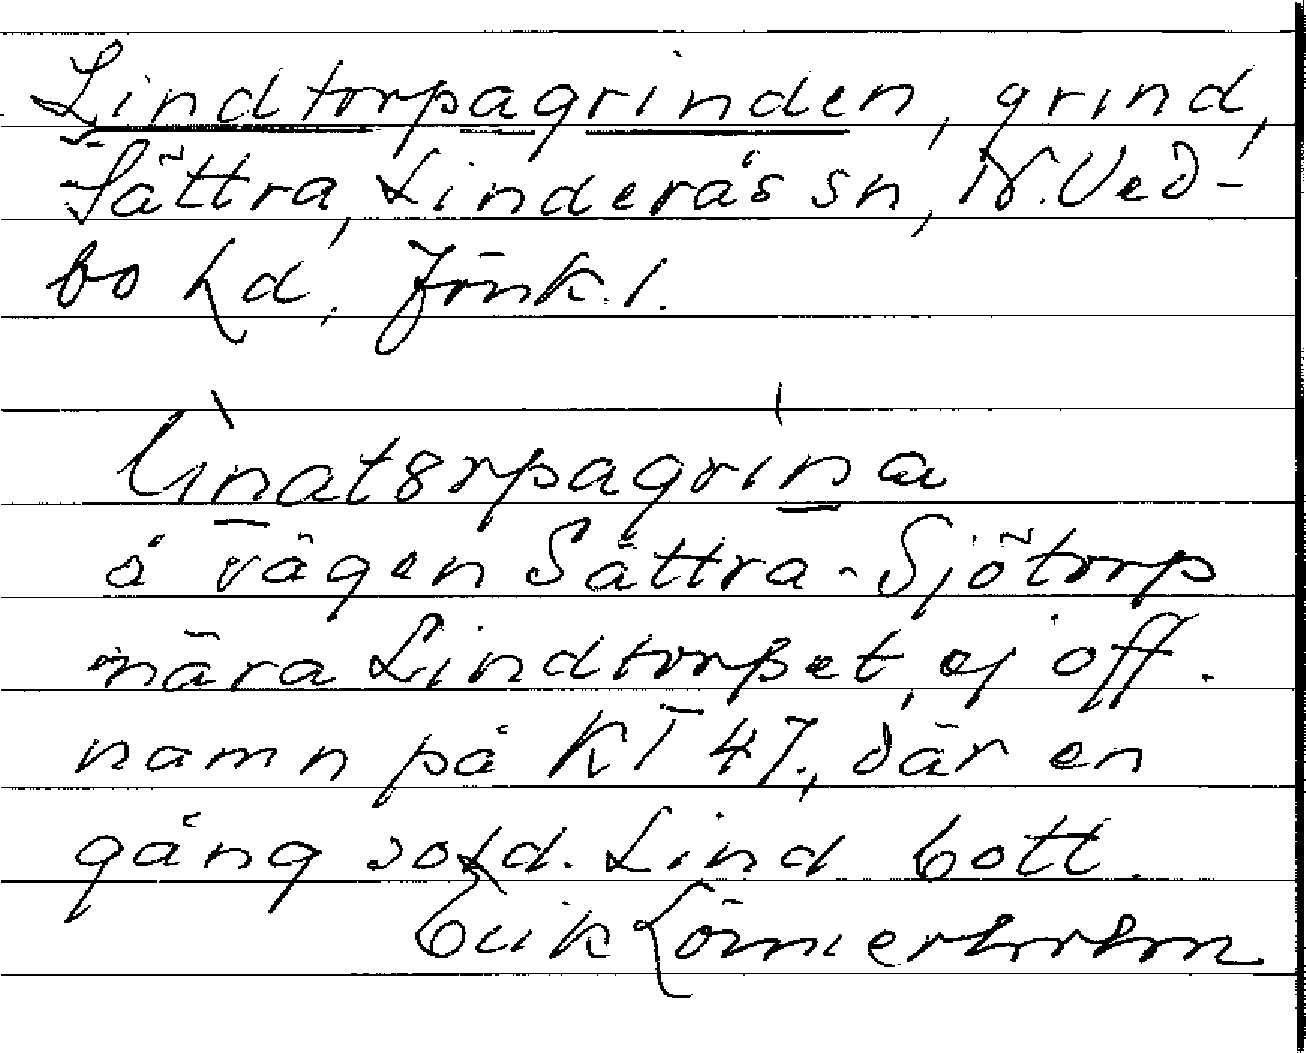 Lindtorpagrinden, grind,
Sättra, Linderås sn, N. Ved-
bo hd, Jönk. l.
å vägen Sättra - Sjötorp
nära Lindtorpet, ej off.
namn på KT 47., där en
gång sold. Lind bott.
Erik Lönnerholm